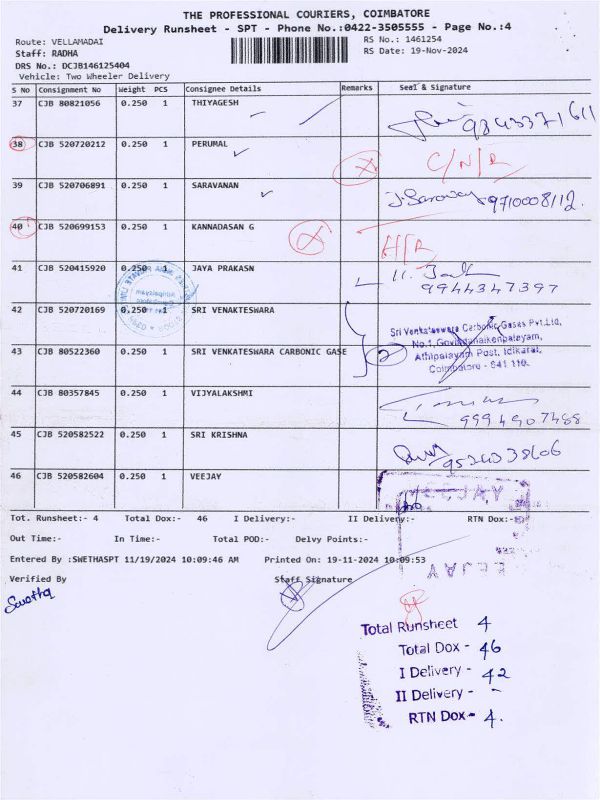 THE PROFESSIONAL COURIERS, COIMBATORE
Delivery Runsheet - SPT - Phone No.:0422-3505555 - Page No.:4
Route: VELLAMADAI
RS No.: 1461254
Staff: RADHA
RS Date: 19-Nov-2024
DRS No.: DCJB146125404
Vehicle: Two Wheeler Delivery
S No Consignment No Weight PCS Consignee Details Remarks Seal & Signature
37 CJB 80821056 0.250 1 THIYAGESH 9843371611
38 CJB 520720212 0.250 1 PERUMAL C/N/R
39 CJB 520706891 0.250 1 SARAVANAN 9710008112.
40 CJB 520699153 0.250 1 KANNADASAN G
41 CJB 520415920 0.250 1 JAYA PRAKASN
9944347397
42 CJB 520720169 0.250 1 SRI VENAKTESWARA
Sri Venkateswara Carbonic Gases Pvt.Ltd,
No.1, Govindanaikenpalayam,
43 CJB 80522360 0.250 1 SRI VENKATESWARA CARBONIC GASE 2
Athipalayam Post, Idikarai,
Coimbatore - 641 110.
44 CJB 80357845 0.250 1 VIJYALAKSHMI
9994907488
45 CJB 520582522 0.250 1 SRI KRISHNA
9524338606
46 CJB 520582604 0.250 1 VEEJAY
VEEJAY
Tot. Runsheet:- 4 Total Dox:- 46 I Delivery:- II Delivery:- RTN Dox:-
Out Time:- In Time:- Total POD:- Delvy Points:-
Entered By :SWETHASPT 11/19/2024 10:09:46 AM Printed On: 19-11-2024 10:09:53
Verified By Staff Signature
Swetha
Total Runsheet 4
Total Dox - 46
I Delivery - 42
II Delivery - -
RTN Dox - 4.